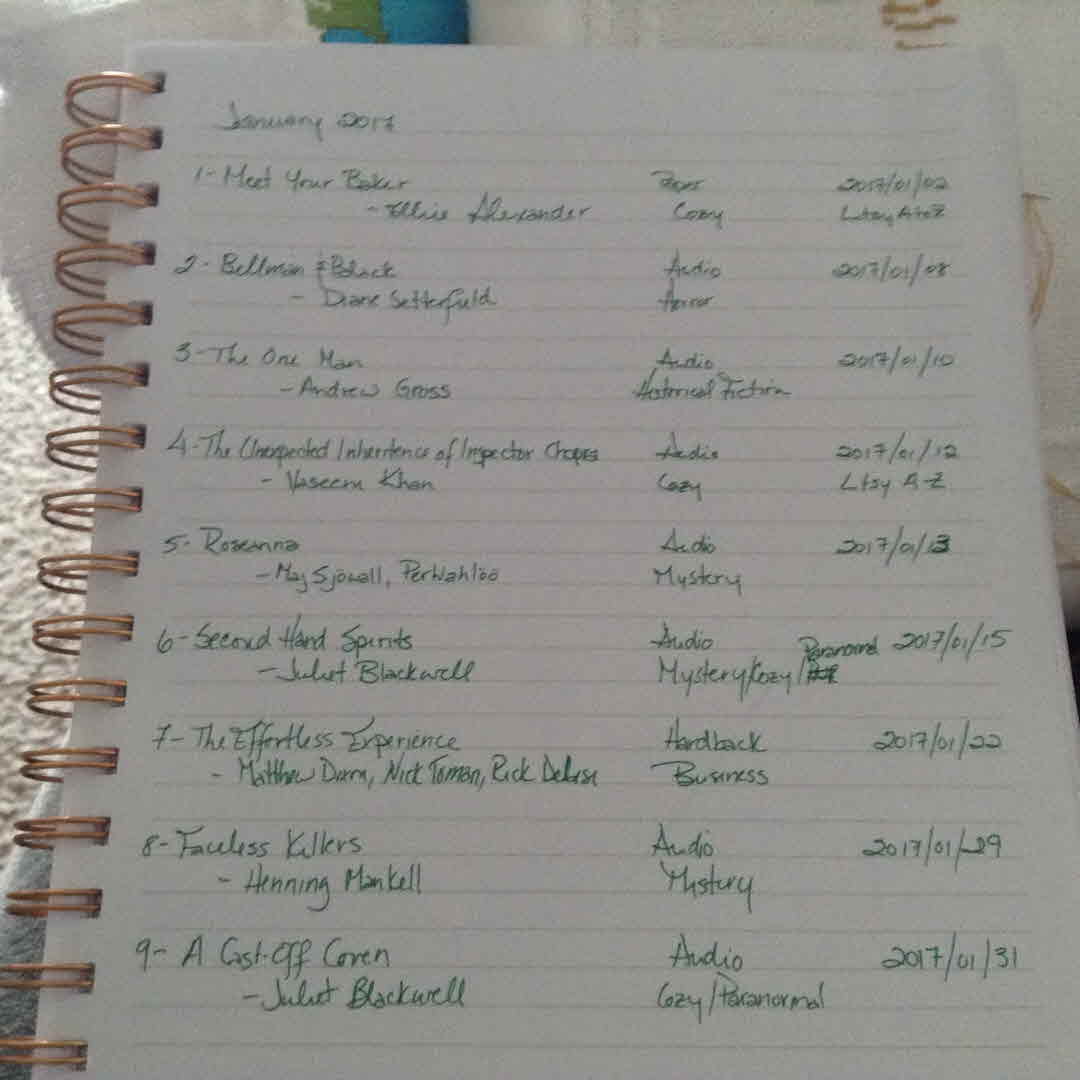 January 2017
1- Meet Your Baker Paper 2017/01/02
- Ellie Alexander Cozy Ltsy A to Z
2- Bellman & Black Audio 2017/01/08
- Diane Setterfield Horror
3- The One Man Audio 2017/01/10
- Andrew Gross Historical Fiction
4- The Unexpected Inheritence of Inspector Chopra Audio 2017/01/12
- Vaseem Khan Cozy Ltsy A-Z
5- Roseanna Audio 2017/01/13
- Maj Sjöwall, Per Wahlöö Mystery
6- Second Hand Spirits Audio 2017/01/15
- Juliet Blackwell Mystery/Cozy/Paranormal
7- The Effortless Experience Hardback 2017/01/22
- Matthew Dixon, Nick Toman, Rick Delisi Business
8- Faceless Killers Audio 2017/01/29
- Henning Mankell Mystery
9- A Cast-Off Coven Audio 2017/01/31
- Juliet Blackwell Cozy/Paranormal